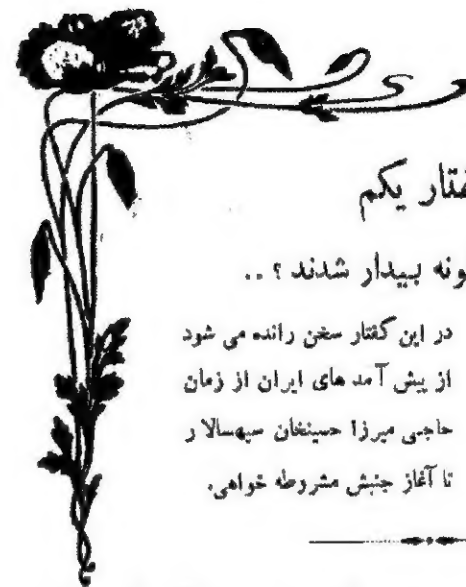 فتار یکم
ونه بیدار شدند ؟ ..
در این گفتار سخن رانده می شود
از پیش آمد های ایران از زمان
حاجی میرزا حسینخان سپهسالار
تا آغاز جنبش مشروطه خواهی.